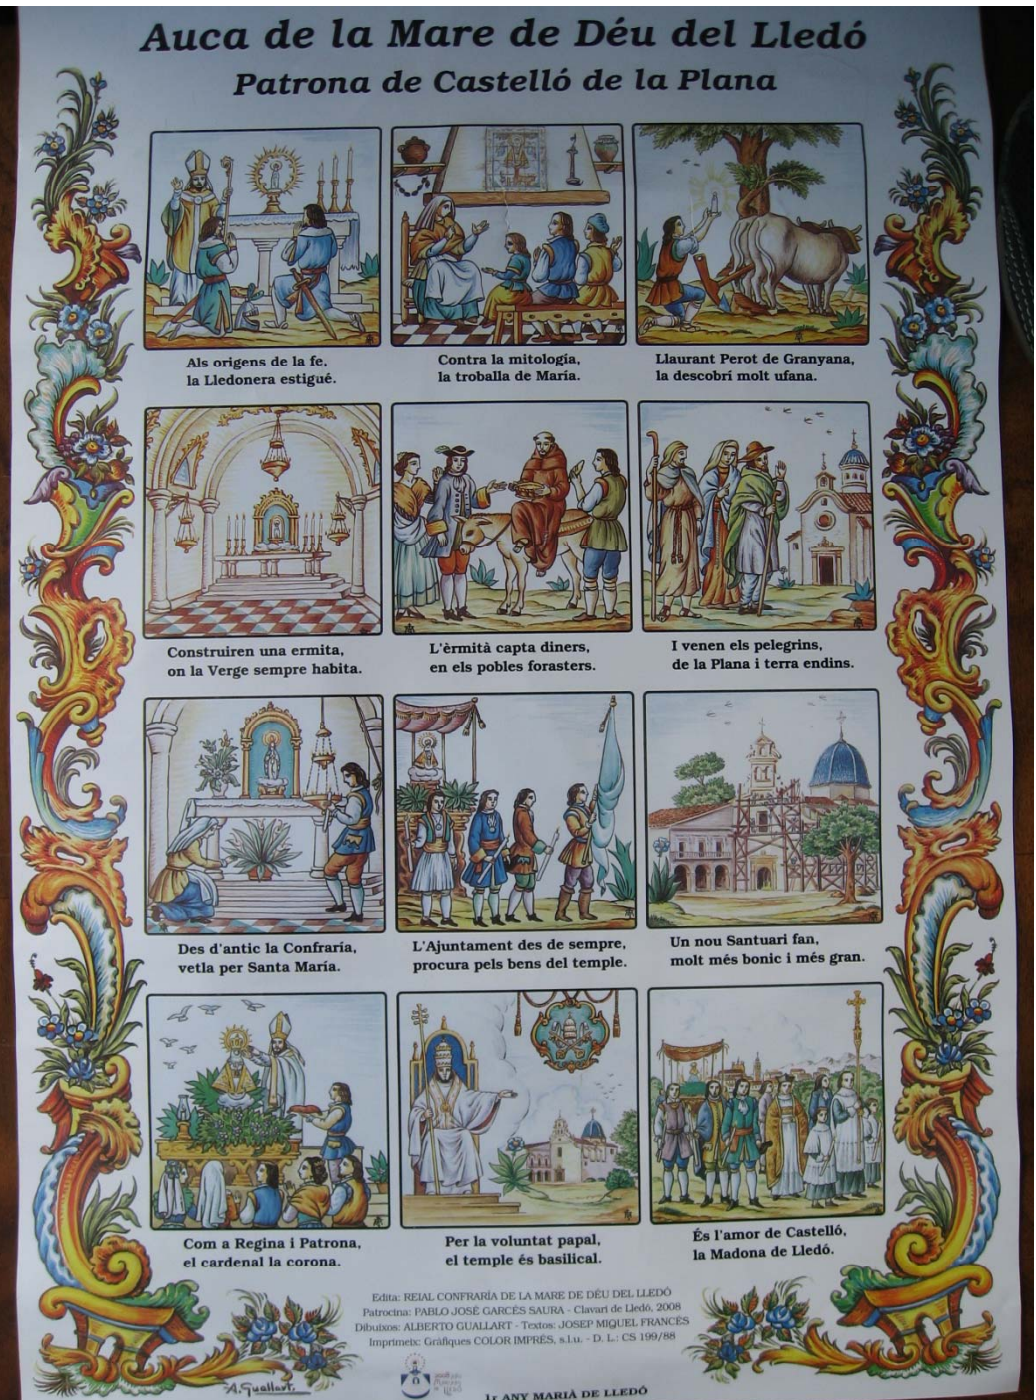 Auca de la Mare de Déu del Lledó
Patrona de Castelló de la Plana
Als origens de la fe,
la Lledonera estigué.
Contra la mitología,
la troballa de María.
Llaurant Perot de Granyana,
la descobrí molt ufana.
Construiren una ermita,
on la Verge sempre habita.
L'èrmità capta diners,
en els pobles forasters.
I venen els pelegrins,
de la Plana i terra endins.
Des d'antic la Confraría,
vetla per Santa María.
L'Ajuntament des de sempre,
procura pels bens del temple.
Un nou Santuari fan,
molt més bonic i més gran.
Com a Regina i Patrona,
el cardenal la corona.
Per la voluntat papal,
el temple és basilical.
És l'amor de Castelló,
la Madona de Lledó.
Edita: REIAL CONFRARÍA DE LA MARE DE DÉU DEL LLEDÓ
Patrocina: PABLO JOSÉ GARCÉS SAURA - Clavari de Lledó, 2008
Dibuixos: ALBERTO GUALLART - Textos: JOSEP MIQUEL FRANCÉS
Imprimeix: Gràfiques COLOR IMPRÉS, s.l.u. - D. L.: CS 199/88
A. Guallart.
1r ANY MARIÀ DE LLEDÓ